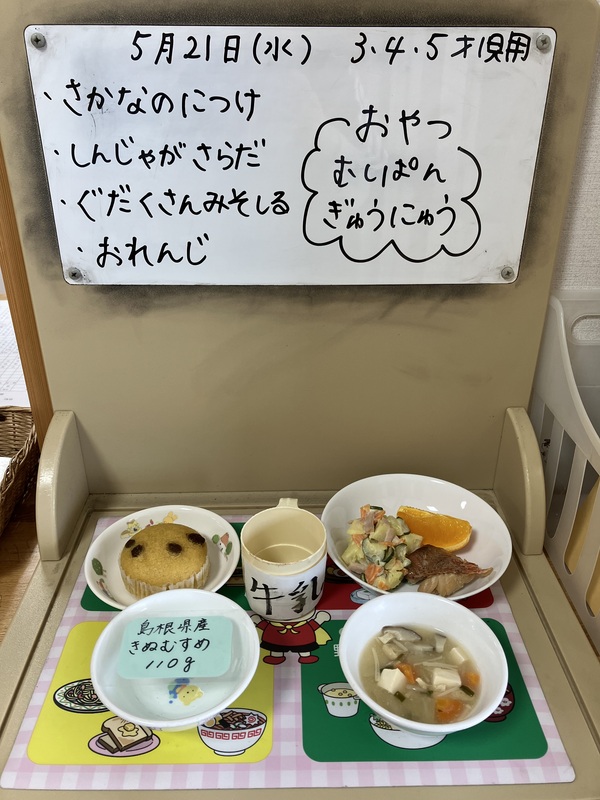 5月21日(水) 3・4・5才児用
・さかなのにつけ
・しんじゃがさらだ
・ぐだくさんみそしる
・おれんじ
おやつ
むしぱん
ぎゅうにゅう
牛乳
島根県産
きぬむすめ
110g